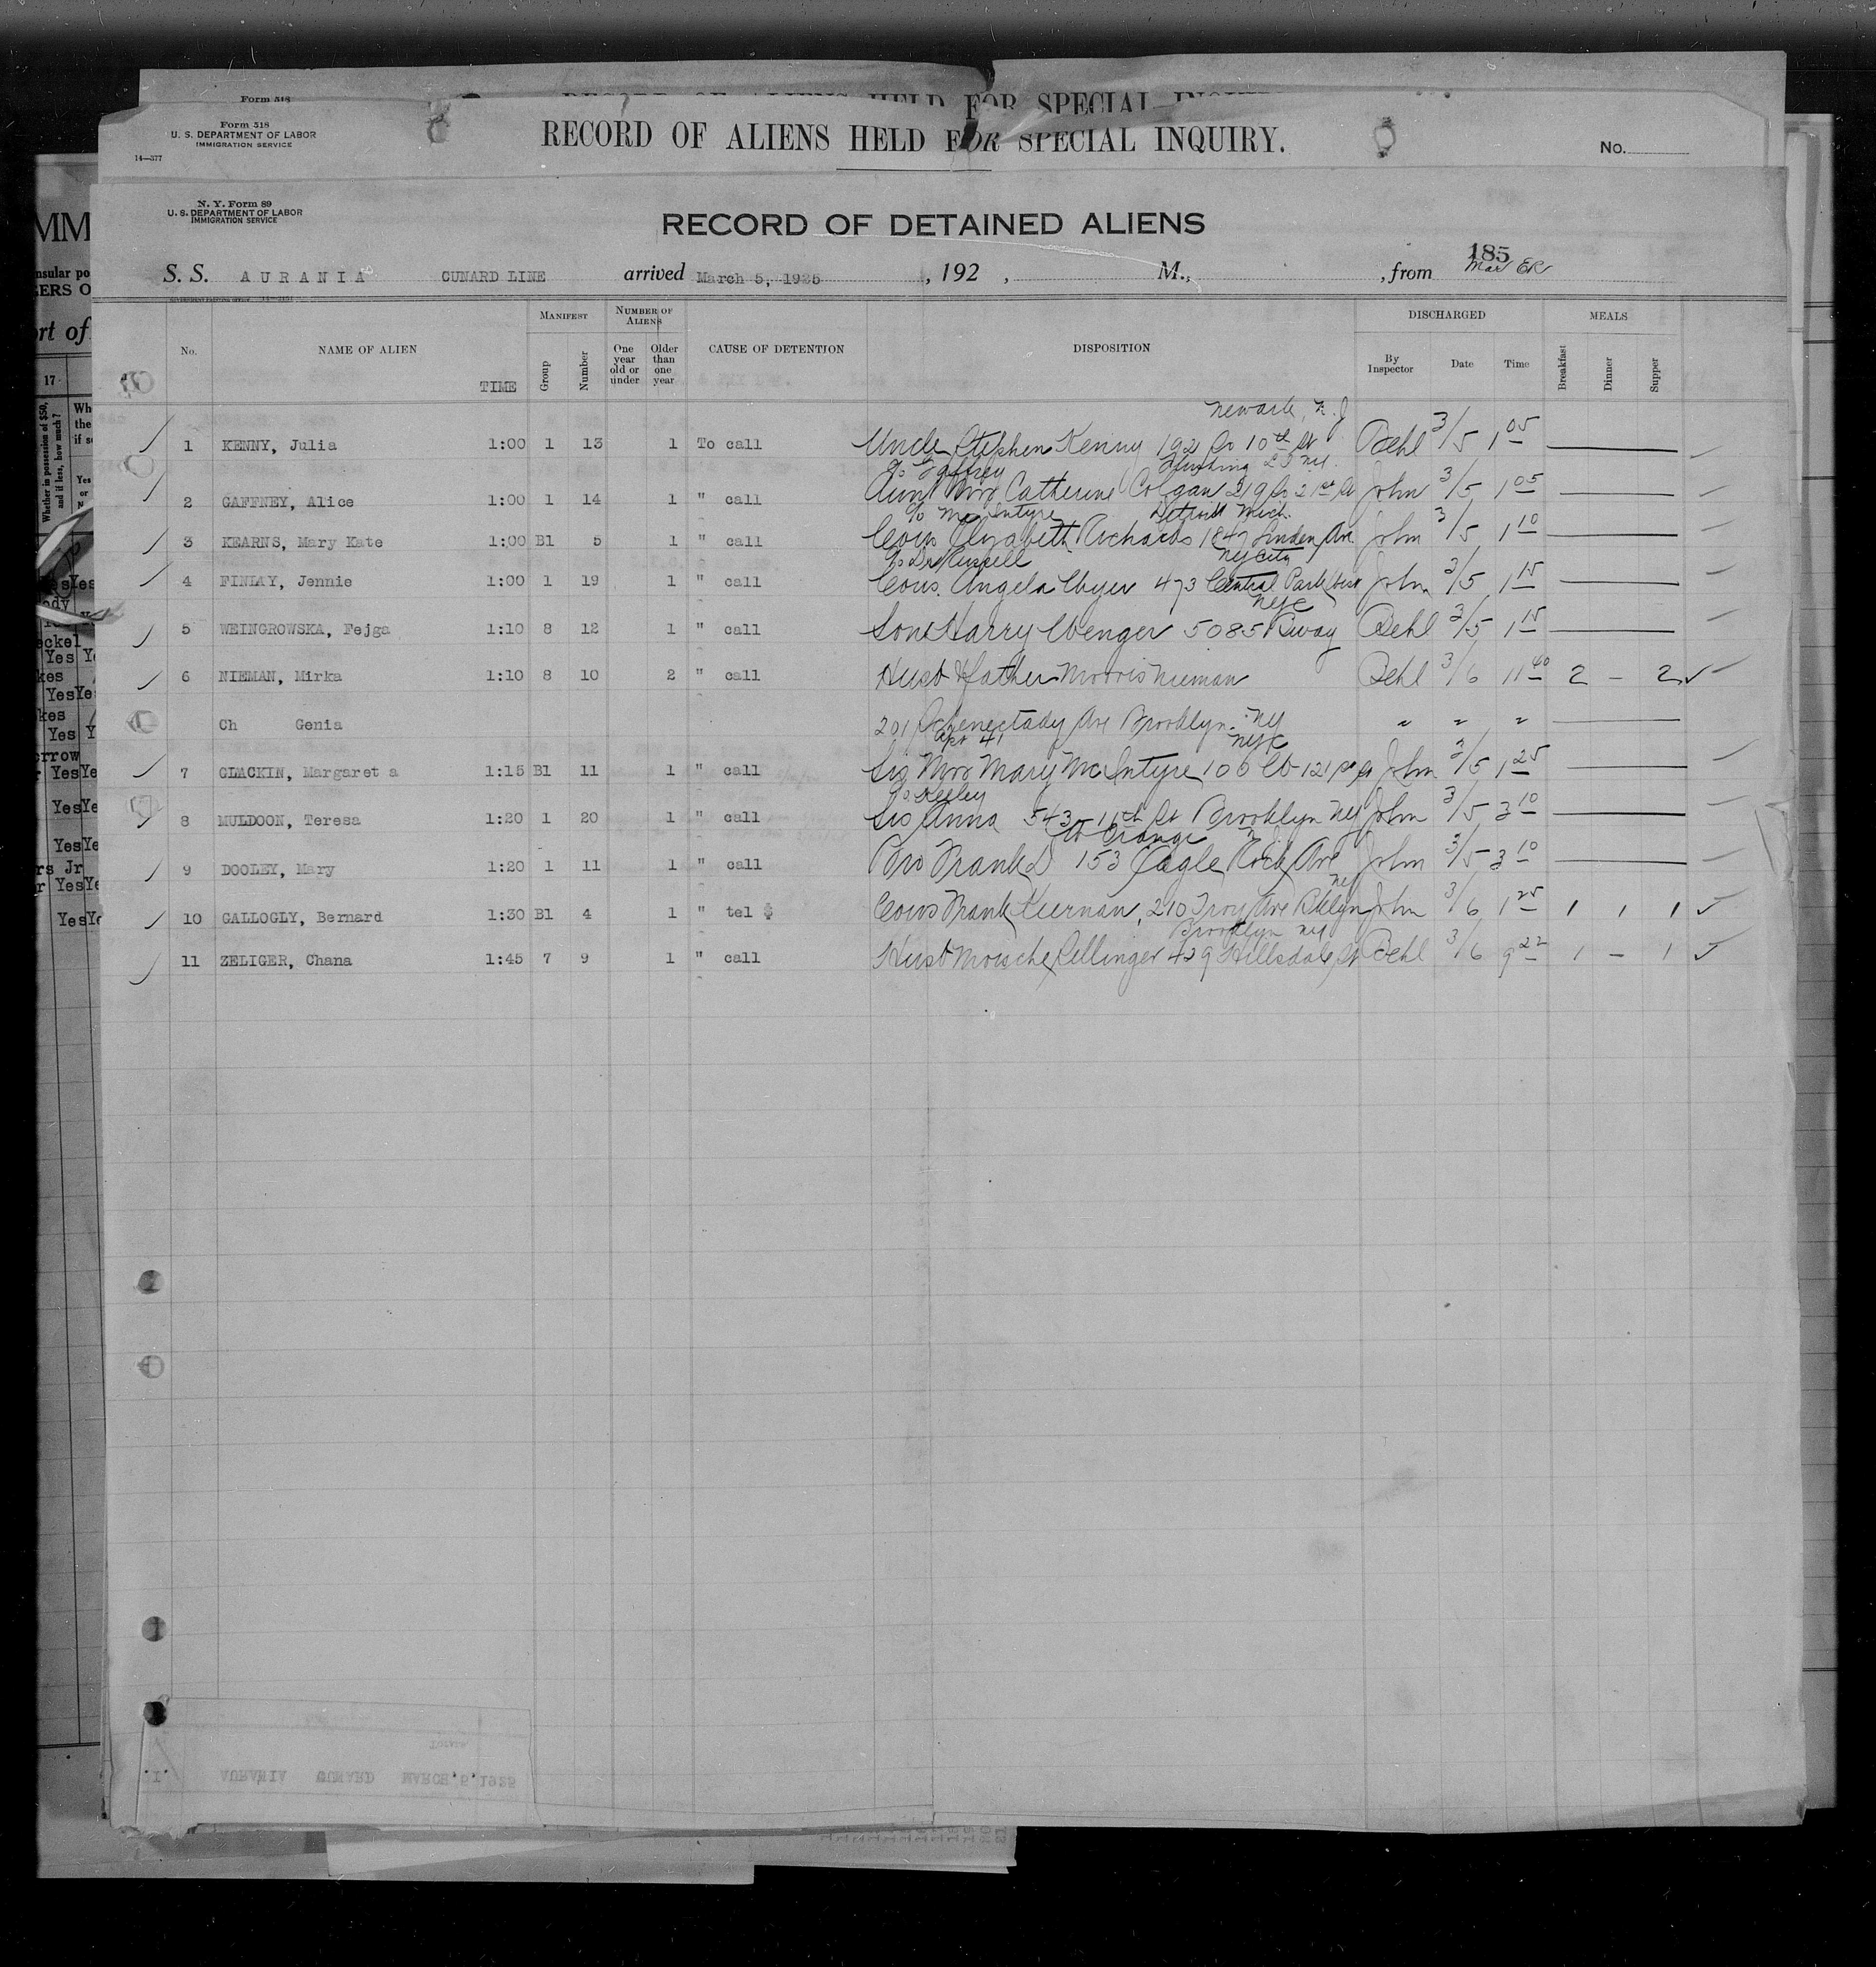 Form 518
RECORD OF ALIENS HELD FOR SPECIAL INQUIRY.
Form 518
U. S. DEPARTMENT OF LABOR
IMMIGRATION SERVICE
14—377
RECORD OF ALIENS HELD FOR SPECIAL INQUIRY.
No.
N. Y. Form 89
U. S. DEPARTMENT OF LABOR
IMMIGRATION SERVICE
RECORD OF DETAINED ALIENS
185
S. S. AURANIA CUNARD LINE arrived March 5, 1925, 192 , M., , from
No. NAME OF ALIEN TIME MANIFEST Group Number NUMBER OF ALIENS One year old or under Older than one year CAUSE OF DETENTION DISPOSITION DISCHARGED By Inspector Date Time MEALS Breakfast Dinner Supper
Newark, N.J
1 KENNY, Julia 1:00 1 13 1 To call Uncle Stephen Kenny 192 So 10th St Behl 3/5 1 05
c/o Gaffney Flushing L I NY.
2 GAFFNEY, Alice 1:00 1 14 1 " call Aunt Mrs Catherine Colgan 219 So 21st St John 3/5 1 05
c/o McIntyre Detroit Mich.
3 KEARNS, Mary Kate 1:00 B1 5 1 " call Cous Elizabeth Richards 1847 Linden Ave John 3/5 1 10
c/o Dr Russell NY City
4 FINLAY, Jennie 1:00 1 19 1 " call Cous. Angela 473 Central Park West John 3/5 1 15
NYC
5 WEINGROWSKA, Fejga 1:10 8 12 1 " call Son Harry Wenger 5085 Bway Behl 3/5 1 15
6 NIEMAN, Mirka 1:10 8 10 2 " call Husb & father Morris Nieman Behl 3/6 11 40 2 – 2 ✓
Ch Genia 201 Schenectady Ave Brooklyn NY " " "
Apt 41 NYC
7 GLACKIN, Margaret a 1:15 B1 11 1 " call Sis Mrs Mary McIntyre 106 W 121 St John 3/5 1 25
c/o Keeley
8 MULDOON, Teresa 1:20 1 20 1 " call Sis Anna 543 11th St Brooklyn NY John 3/5 3 10
W Orange N.J
9 DOOLEY, Mary 1:20 1 11 1 " call Bro Frank D 153 Eagle Rock Ave John 3/5 3 10
NY
10 GALLOGLY, Bernard 1:30 B1 4 1 " tel $ Cous Frank Kiernan, 210 Troy Ave Bklyn John 3/6 1 25 1 1 1 ✓
Brooklyn NY
11 ZELIGER, Chana 1:45 7 9 1 " call Husb Moische Sellinger 429 Hillsdale St Behl 3/6 9 22 1 – 1 ✓
AURANIA CUNARD MARCH 5, 1925